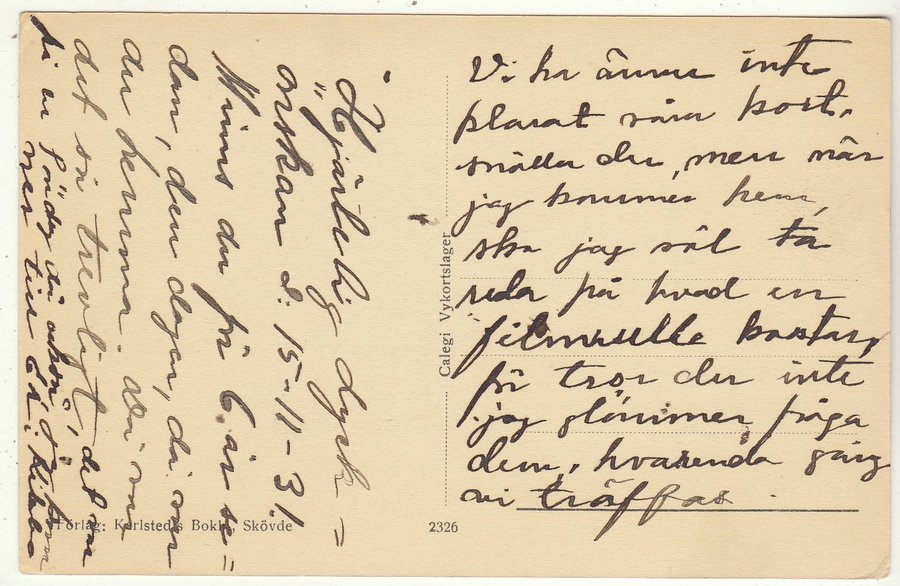 Hjärtlig lyck=
önskan d. 15-11-31.
Minns du för 6 år se=
dan, den dagen, då var
du hemma.
det så trevligt, det var
då också, jag kom
ner till
Vi ha ännu inte
klarat våra kort,
snälla du, men när
jag kommer hem,
ska jag väl ta
reda på hvad en
filmrulle kostar,
för tror du inte
jag glömmer fråga
dem, hvarenda gång
vi träffas.
Calegi Vykortslager
Förlag: Karlstedts Bokh. Skövde
2326